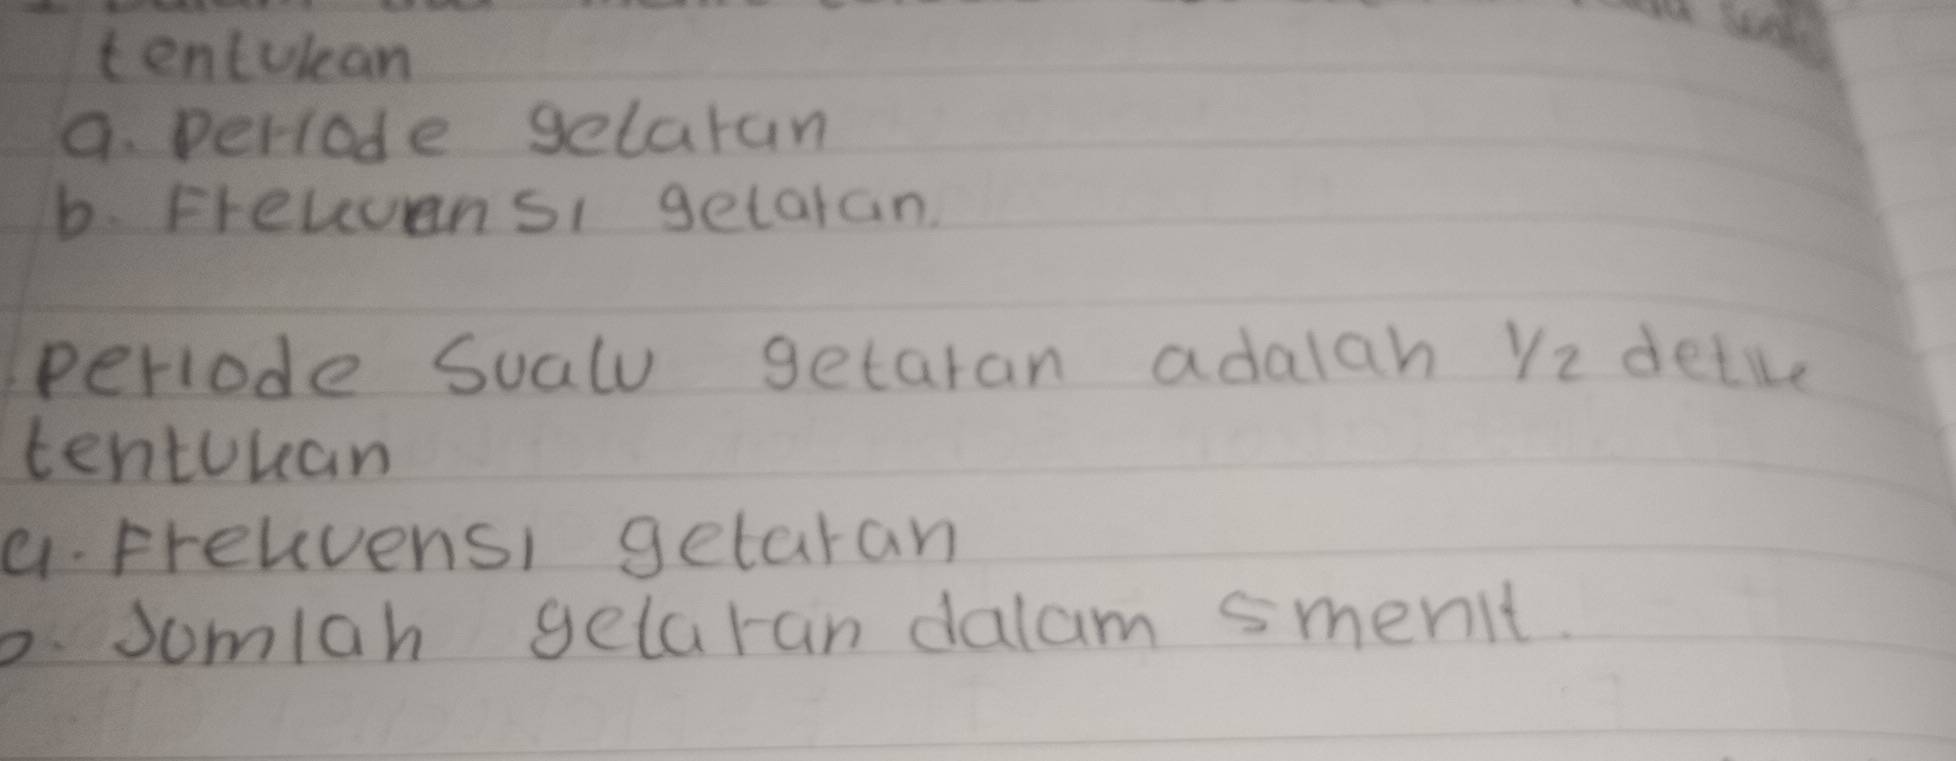 tentukan
a. Periode getaran
b. Frekuensi getaran.
Periode Suatu getaran adalah 1/2 detik
tentukan
a. Frekuensi getaran
b. Jumlah getaran dalam 5 menit.